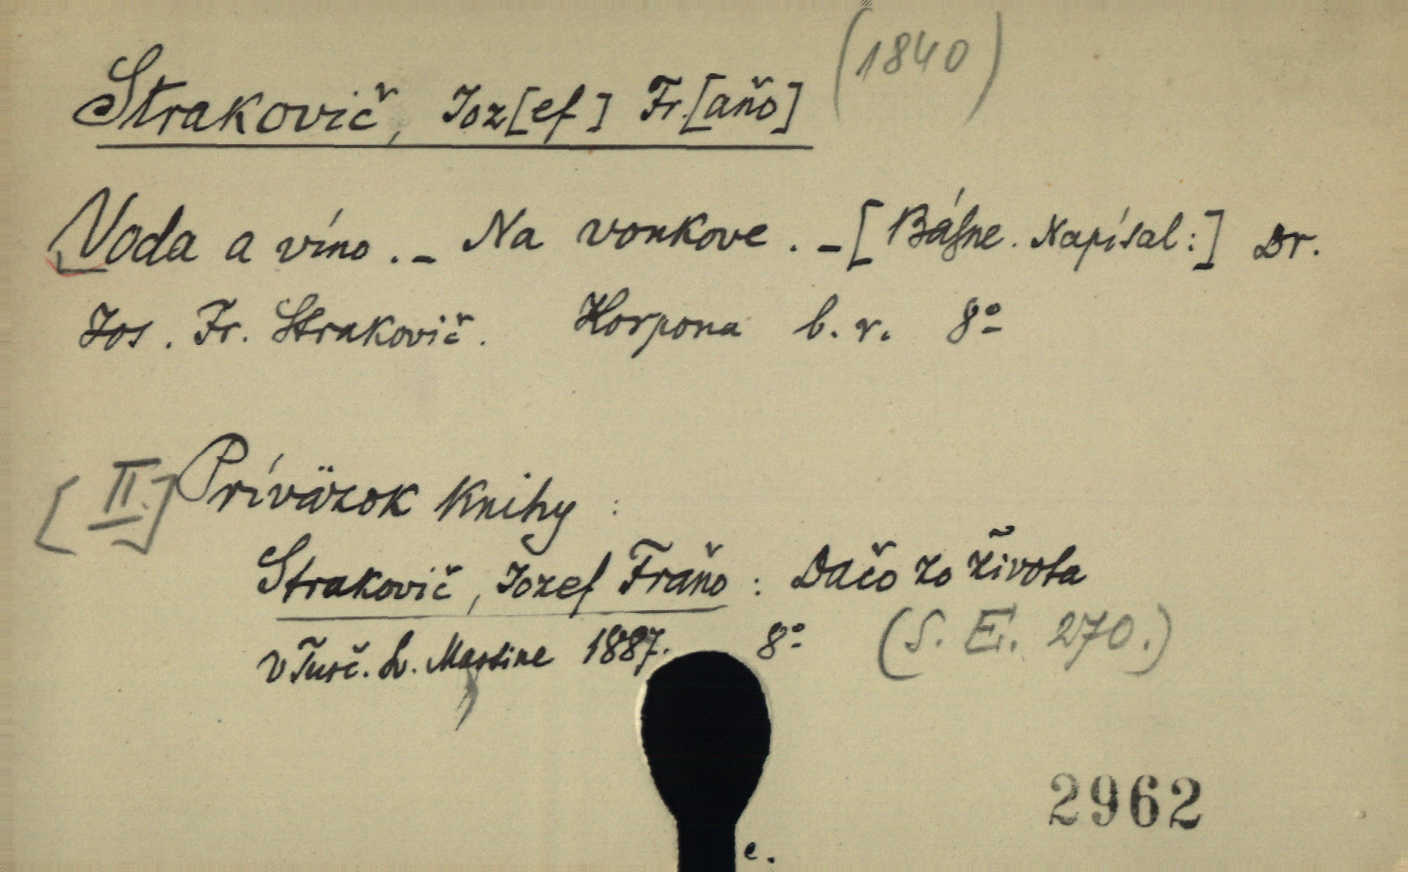 (1840)
Strakovič, Joz[ef] Fr.[aňo]
Voda a víno. – Na vonkove. – [Básne. Napísal:] Dr.
Jos. Fr. Strakovič. Korpona b. r. 8°
[II.] Príväzok knihy:
Strakovič, Jozef Fraňo: Dačo zo života
v Turč. Sv. Martine 1887. 8°
(S. E. 270.)
2962
c.